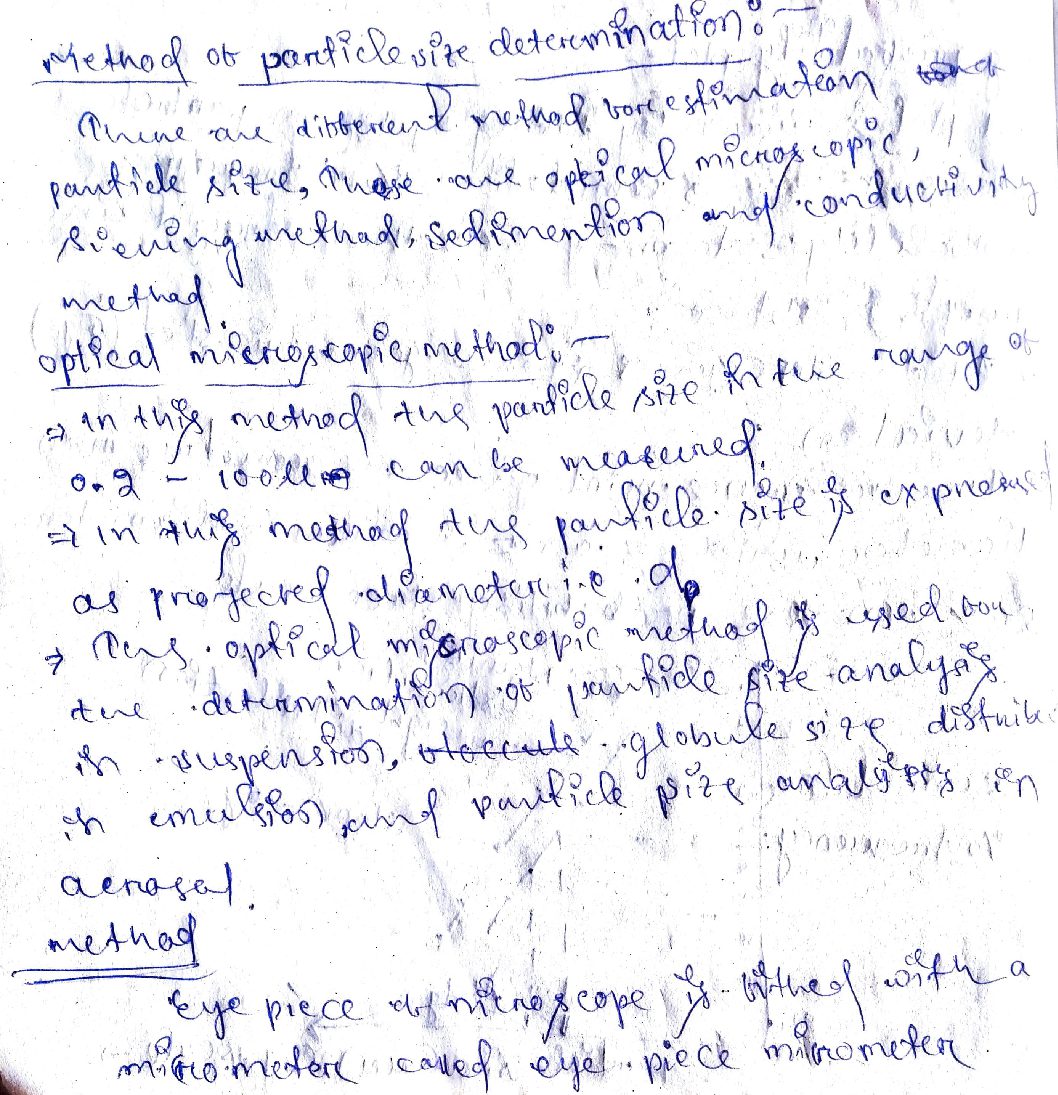 Method of particle size determination:-
There are different method for estimation
particle size, These are optical microscopic,
sieving method, sedimention and conductivity
method.
optical microscopic method:-
⇒ in this method the particle size in the range of
0.2 - 100 can be measured.
⇒ in this method the particle size is express
as projected diameter i.e. dp
→ This optical microscopic method is used for
the determination of particle size analysis
in suspension, globule size distrib
in emulsion, and particle size analysis in
aerosol.
method
Eye piece of microscope is fitted with a
micrometer called eye piece micrometer